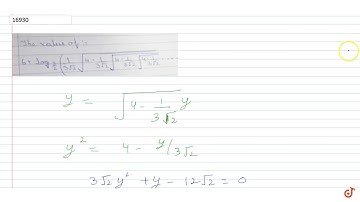 16930
The value of :
6+ log_{3/2} (1/3√2 √4 - 1/3√2 √4 - 1/3√2 √4 - 1/3√2 ...
y = √4 - 1/3√2 y
y² = 4 - y/3√2
3√2 y² + y - 12√2 = 0